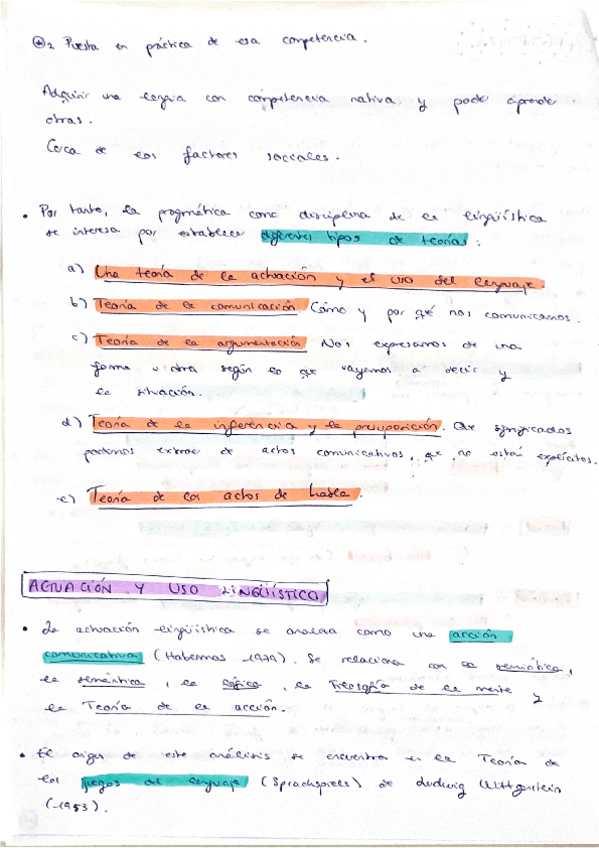 *2 Puesta en práctica de esa competencia.
Adquirir una lengua con competencia nativa y poder aprender
otras.
Cerca de los factores sociales.
• Por tanto, la pragmática como disciplina de la lingüística
se interesa por establecer diferentes tipos de teorías:
a) Una teoría de la actuación y el uso del lenguaje.
b) Teoría de la comunicación. Cómo y por qué nos comunicamos.
c) Teoría de la argumentación. Nos expresamos de una
forma u otra según lo que vayamos a decir y
la situación.
d) Teoría de la inferencia y la presuposición. Que significados
podemos extraer de actos comunicativos, que no están explícitos.
e) Teoría de los actos de habla.
ACTUACIÓN Y USO LINGÜÍSTICO
• La actuación lingüística se analiza como una acción
comunicativa (Habermas 1979). Se relaciona con la semiótica,
la semántica, la lógica, la Filosofía de la mente y
la Teoría de la acción.
• El origen de este análisis se encuentra en la Teoría de
los juegos del lenguaje (Sprachspiels) de Ludwig Wittgenstein
(1953).